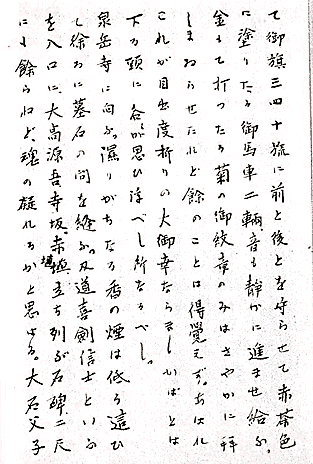 て御旗三四十旒に前と後とを守らせて赤茶色
に塗りたる御馬車二輛音も静かに進ませ給ふ。
金もて打つたる菊の御紋章のみはさやかに拝
しまゐらせたれど餘のことは得覚えず。あはれ
これが目出度折りの大御幸たらましかばとは
下る頭に各が思ひ浮べし所なるべし。
泉岳寺に向ふ。濕りがちたる香の煙は低う這ひ
て徐ろに墓石の間を縫ふ。刃道喜劍信士といふ
を入口に、大高源吾寺坂、赤埴立ち列ぶ石碑二尺
に餘らねど、魂の旋れるかと思はる。大石父子